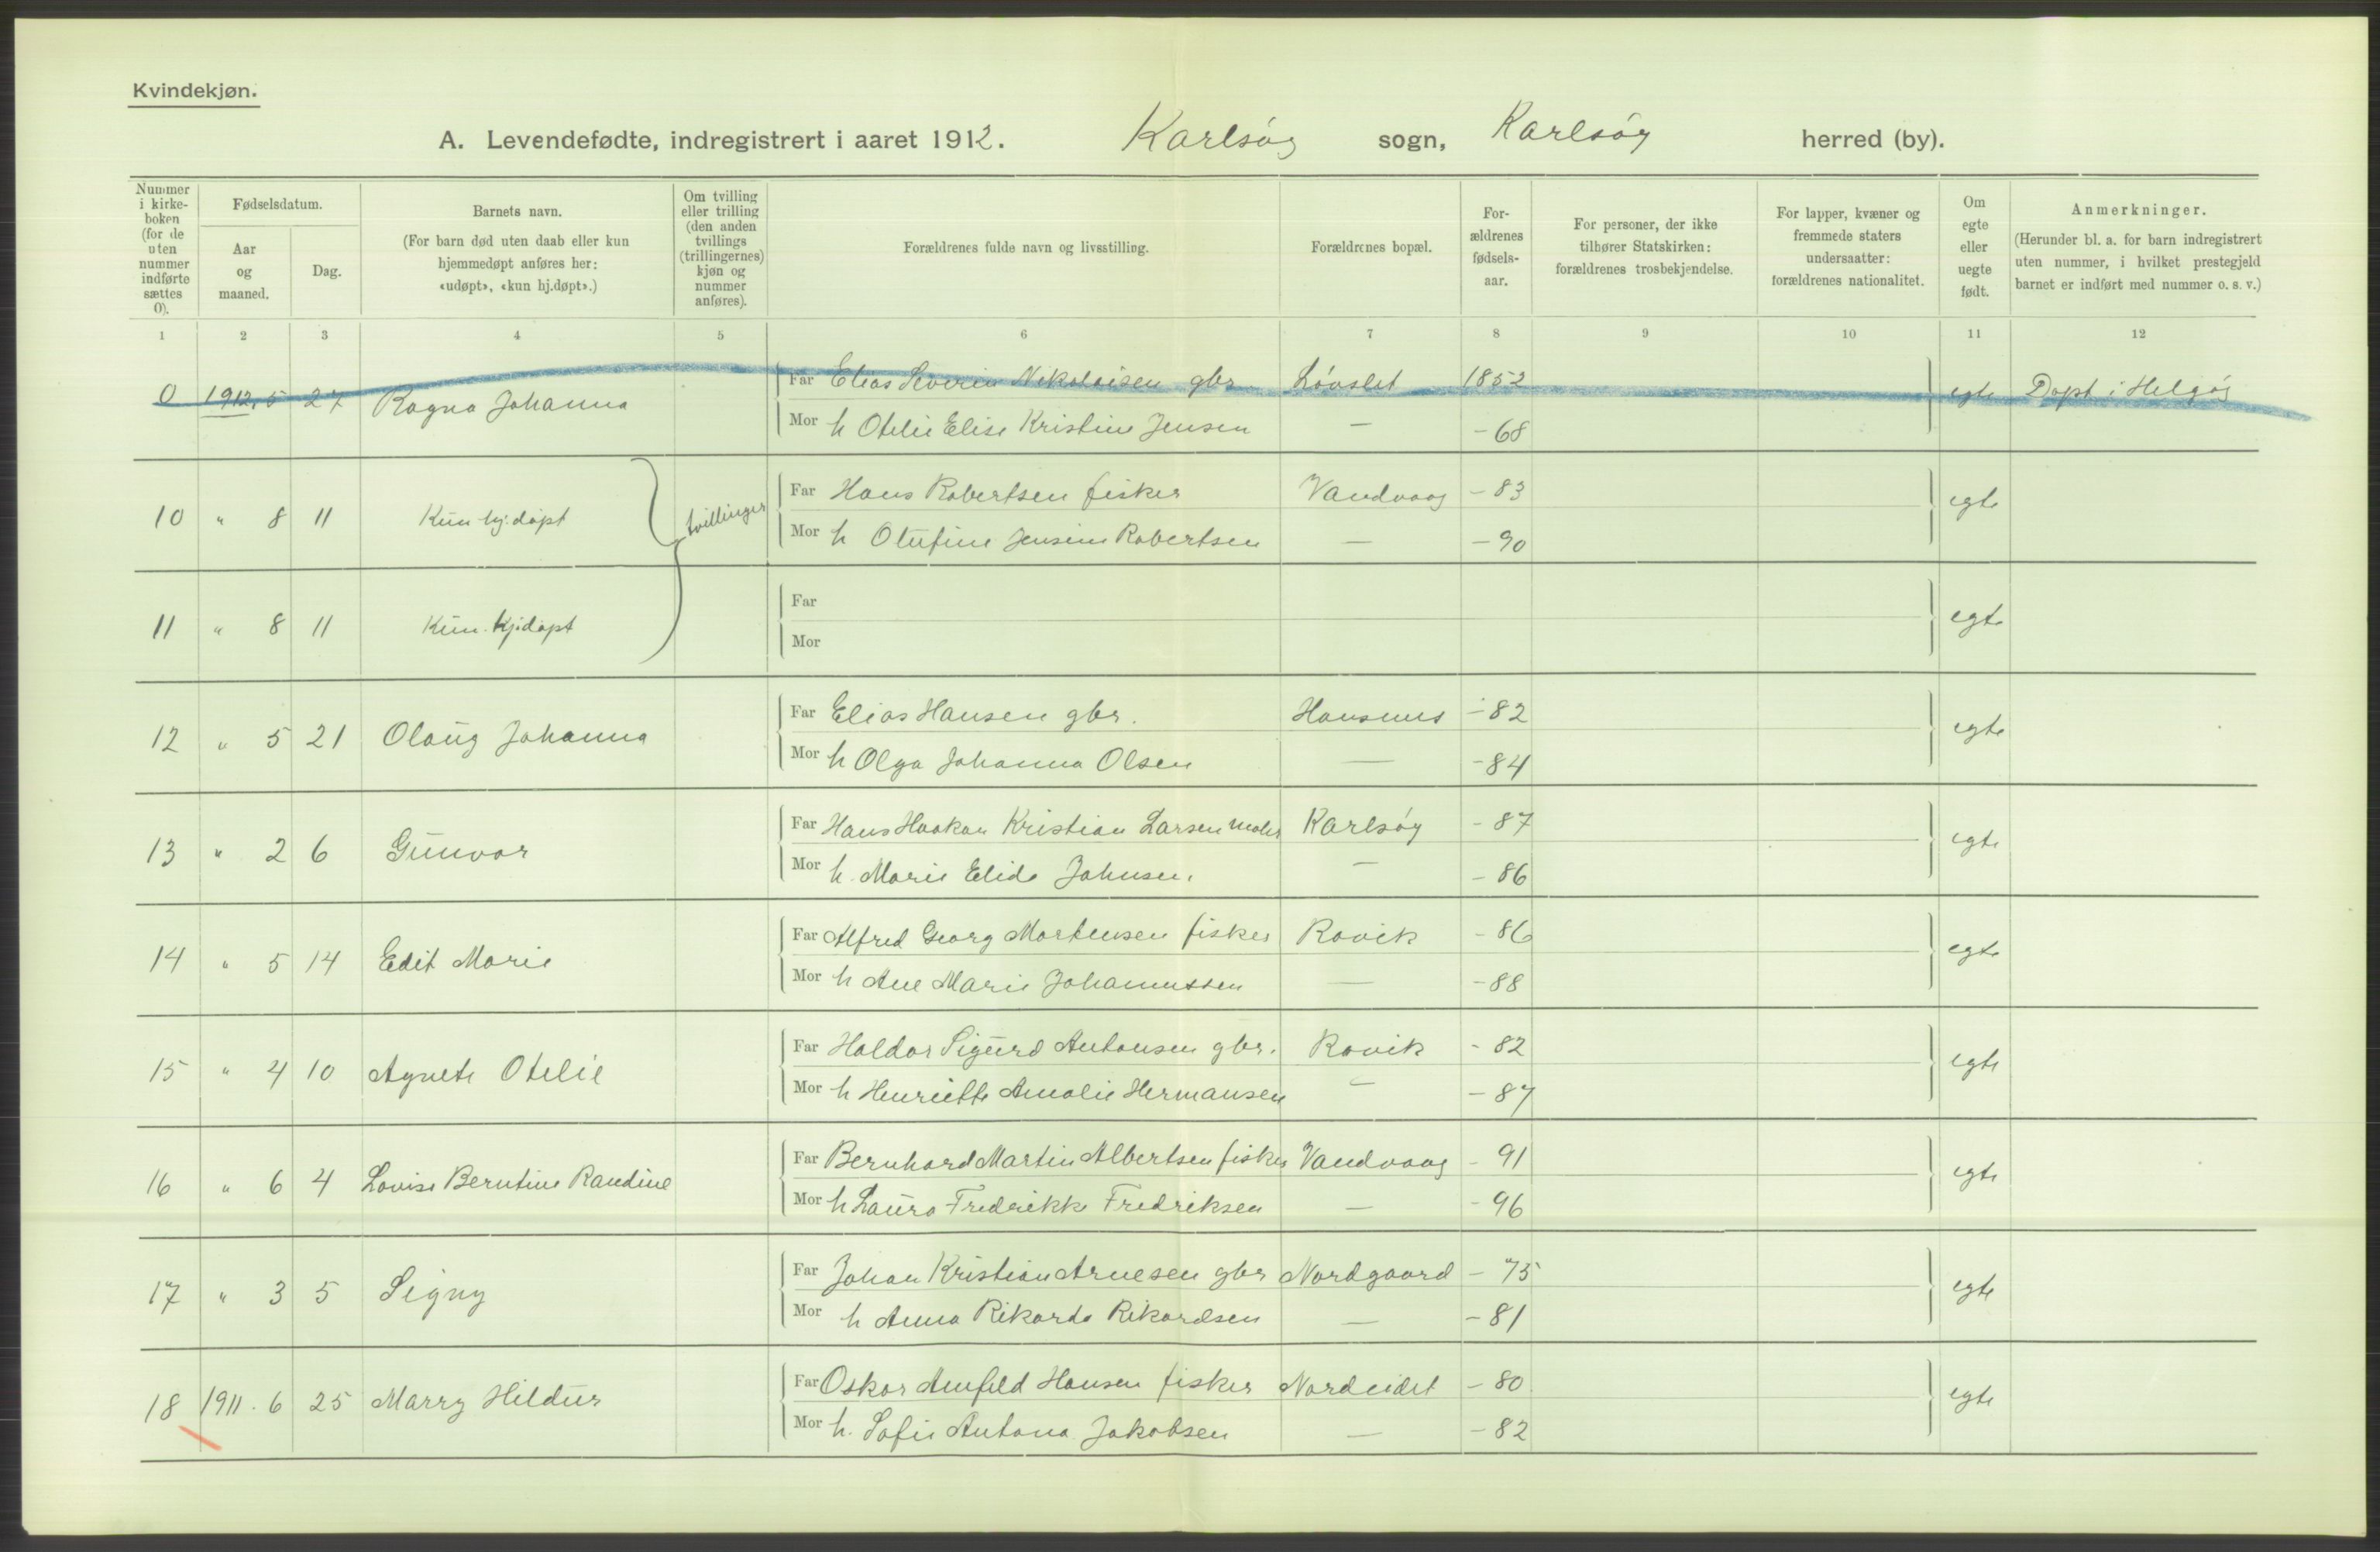 Kvindekjøn.
A. Levendefødte, indregistrert i aaret 1912. Karlsøy sogn, Karlsøy herred (by).
Nummer i kirke-boken (for de uten nummer indførte sættes 0).
Fødselsdatum.
Aar og maaned.
Dag.
Barnets navn.
(For barn død uten daab eller kun hjemmedøpt anføres her: «udøpt», «kun hj.døpt».)
Om tvilling eller trilling (den anden tvillings (trillingernes) kjøn og nummer anføres).
Forældrenes fulde navn og livsstilling.
Forældrenes bopæl.
For-ældrenes fødsels-aar.
For personer, der ikke tilhører Statskirken: forældrenes trosbekjendelse.
For lapper, kvæner og fremmede staters undersaatter: forældrenes nationalitet.
Om egte eller uegte født.
Anmerkninger.
(Herunder bl. a. for barn indregistrert uten nummer, i hvilket prestegjeld barnet er indført med nummer o. s. v.)
1 2 3 4 5 6 7 8 9 10 11 12
0 1912. 5 27 Ragna Johanna Far Elias Severin Nikolaisen gbr Løvslet 1852 egte Døpt i Helgøy
Mor h Otelie Elise Kristine Jensen — - 68
10 " 8 11 Kun hj.døpt tvillinger Far Hans Robertsen fisker Vandvaag - 83 egte
Mor h Olufine Jensine Robertsen — - 90
11 " 8 11 Kun hj.døpt Far egte
Mor
12 " 5 21 Olaug Johanna Far Elias Hansen gbr. Hansnes - 82 egte
Mor h Olga Johanna Olsen — - 84
13 " 2 6 Gunvor Far Hans Haakon Kristian Larsen maler Karlsøy - 87 egte
Mor h. Marie Elida Johnsen. — - 86
14 " 5 14 Edit Marie Far Alfred Georg Mortensen fisker Ravik - 86 egte
Mor h Ane Marie Johannessen — - 88
15 " 4 10 Agnete Otelie Far Haldor Sigurd Antonsen gbr. Ravik - 82 egte
Mor h Henriette Amalie Hermansen — - 87
16 " 6 4 Lovise Berntine Randine Far Bernhard Martin Albertsen fisker Vandvaag - 91 egte
Mor h Laura Fredrikke Fredriksen — - 96
17 " 3 5 Signy Far Johan Kristian Arnesen gbr Nordgaard - 75 egte
Mor h Anna Rikarda Rikardsen — - 81
18 1911. 6 25 Marry Hildur Far Oskar Amfeld Hansen fisker Nordeidet - 80 egte
Mor h. Sofie Antona Jakobsen — - 82